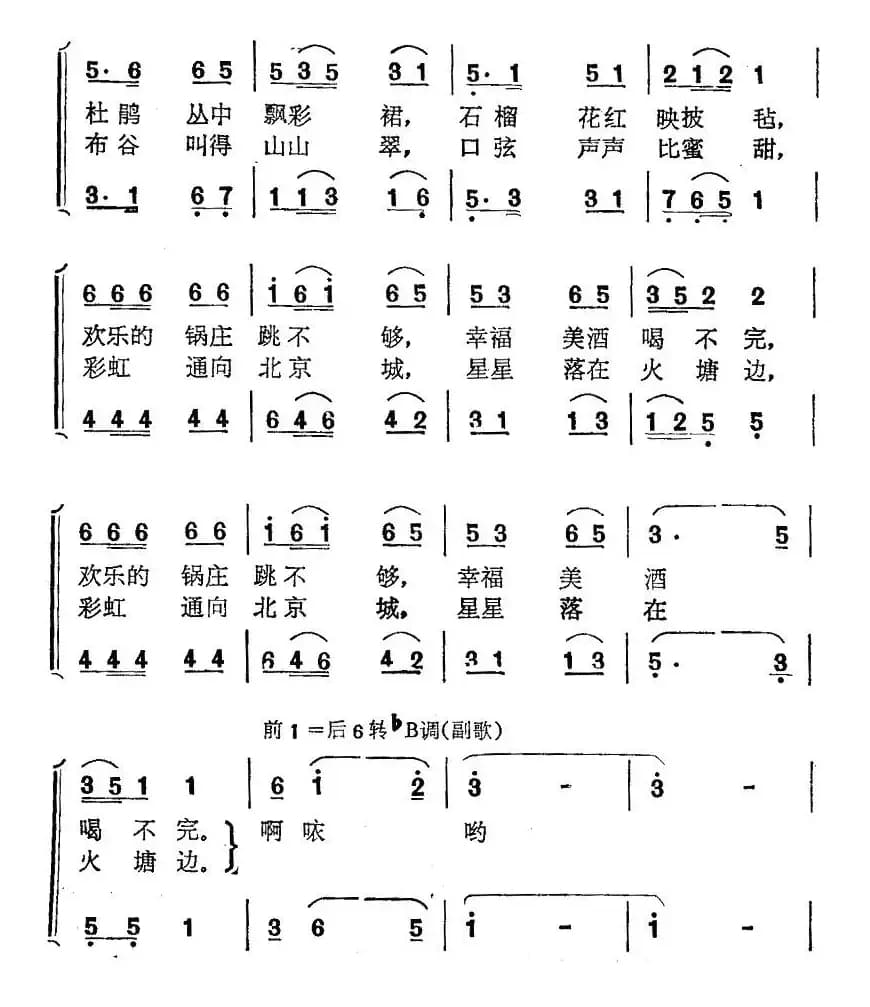 5· 6 6 5 | 5 3 5 3 1 | 5· 1 5 1 | 2 1 2 1 |
杜鹃 丛中 飘彩 裙, 石榴 花红 映披 毡,
布谷 叫得 山山 翠, 口弦 声声 比蜜 甜,
3· 1 6 7 | 1 1 3 1 6 | 5· 3 3 1 | 7 6 5 1 |
6 6 6 6 6 | i 6 i 6 5 | 5 3 6 5 | 3 5 2 2 |
欢乐的 锅庄 跳不 够, 幸福 美酒 喝 不 完,
彩虹 通向 北京 城, 星星 落在 火 塘 边,
4 4 4 4 4 | 6 4 6 4 2 | 3 1 1 3 | 1 2 5 5 |
6 6 6 6 6 | i 6 i 6 5 | 5 3 6 5 | 3 · 5 |
欢乐的 锅庄 跳不 够, 幸福 美 酒
彩虹 通向 北京 城, 星星 落 在
4 4 4 4 4 | 6 4 6 4 2 | 3 1 1 3 | 5 · 3 |
前1=后6转♭B调(副歌)
3 5 1 1 | 6 i 2 | 3 - | 3 - |
喝 不 完。 } 啊 哝 哟
火 塘 边。
5 5 1 | 3 6 5 | i - | i - |